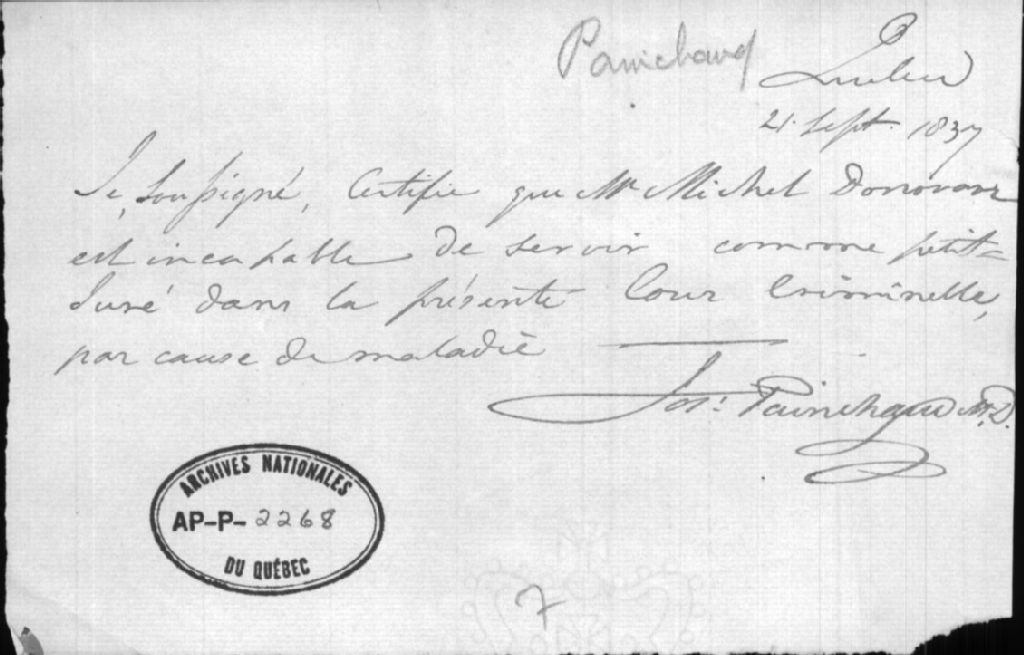 Painchaud
Québec
21. Sept. 1837
Je, Soussigné, Certifie que Mr. Michel Donovan
est incapable de servir comme petit=
Juré dans la présente Cour Criminelle,
par cause de maladie
Jos: Painchaud M.D.
ARCHIVES NATIONALES
AP-P-2268
DU QUÉBEC
7